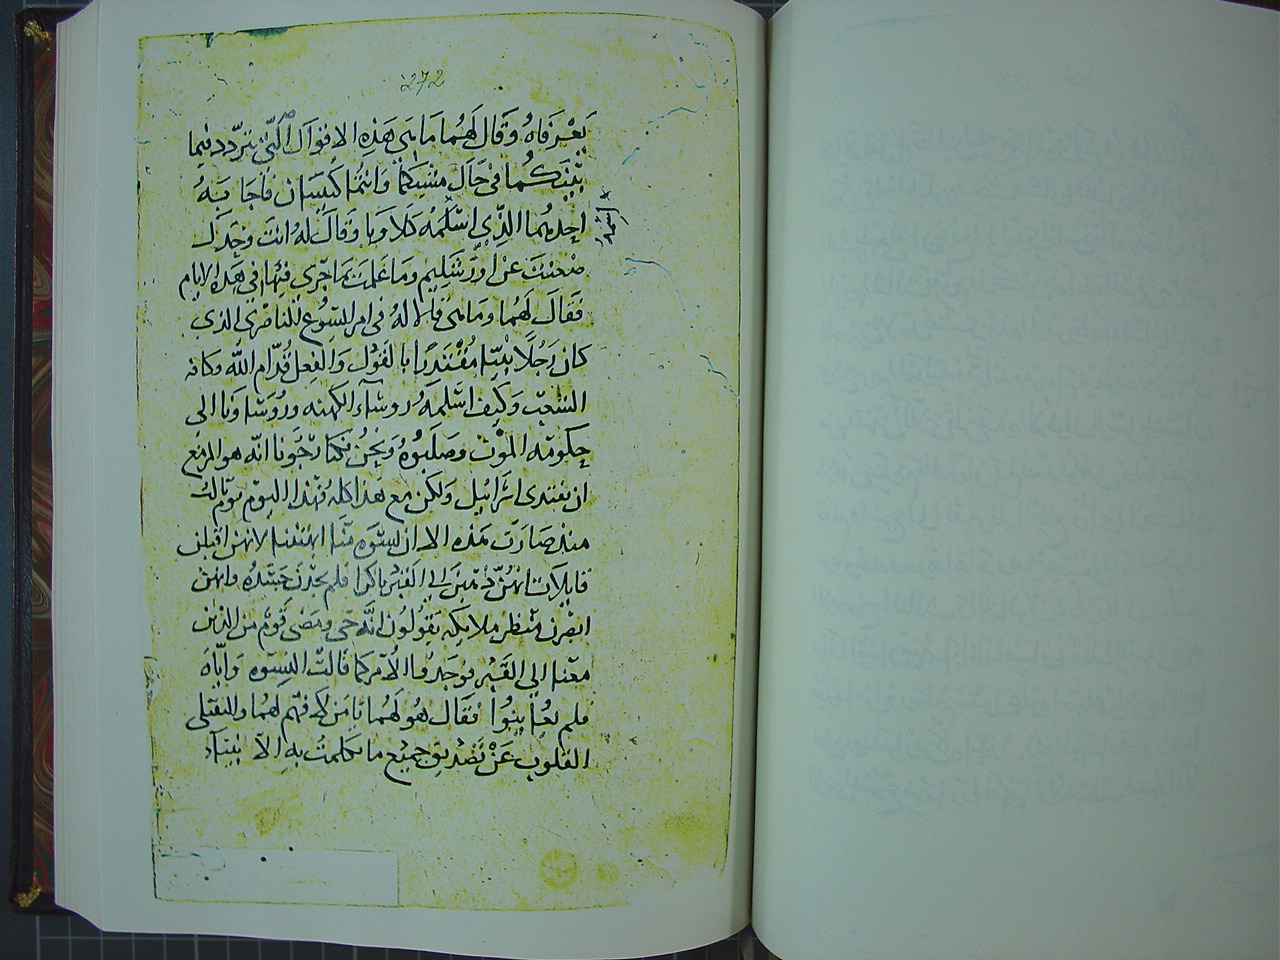 272
يَعْرِفَاهُ وَقَال لَهُمَا مَا هَى هَذِهِ الاقوَال الَّتِي يتردّد فيما
بَيْنَكُما في حَال مشيكمَا وَانتُما كيِّسَان فاجَابَهُ
احِدهُما الذِّى اسْمُه كَلاوبَا وَقَال لهُ انتَ وحْدَك
عَن اورشَليم وَمَا عَلمتَ بمَا جَرى فيْهَا في هَذه الايام
فَقَالَ لَهُمَا ومَا هَى فَقَالا لهُ فى امر ايسُوع الناصرى الذى
كان رَجُلًا نبيّا مُقتَدرًا بالقَوْل وَالفِعل قُدّام اللّه وكافه
الشعْب وَكَيف اسْلمَهُ روسَآء الكَهنه وروُسَاونَا الى
حكومَه الموْت وصَلبُوهُ وَنحْنُ كنا رجَونا انّه هو المزمع
ان يفتدى اسْرَائيل وَلكن مع هَذا كله فهَذا اليوم يوم ثالث
منذ صَارَت هَذه الا ان نسْوَه منّا اهتفننا لانهن اقبلن
قايلاَت انهُنّ اتين الى القبر باكرا فلم يجدْن جَسَدُه وانهن
ابصَرن منظر ملايكه يَقُولُون انّه حَى ومَضى قَوم من الذين
معَنا الي القَبْر فوجَدوا الامْر كمَا قَالتْ النسوه وَايّاهُ
فلم يعَاينوُا فقَال هُو لهُما يَا مَن لا فَهم لهُما والثقيلى
القلوب عَن تَصْديق جميع مَا تكلمتْ به الا نبيَآء